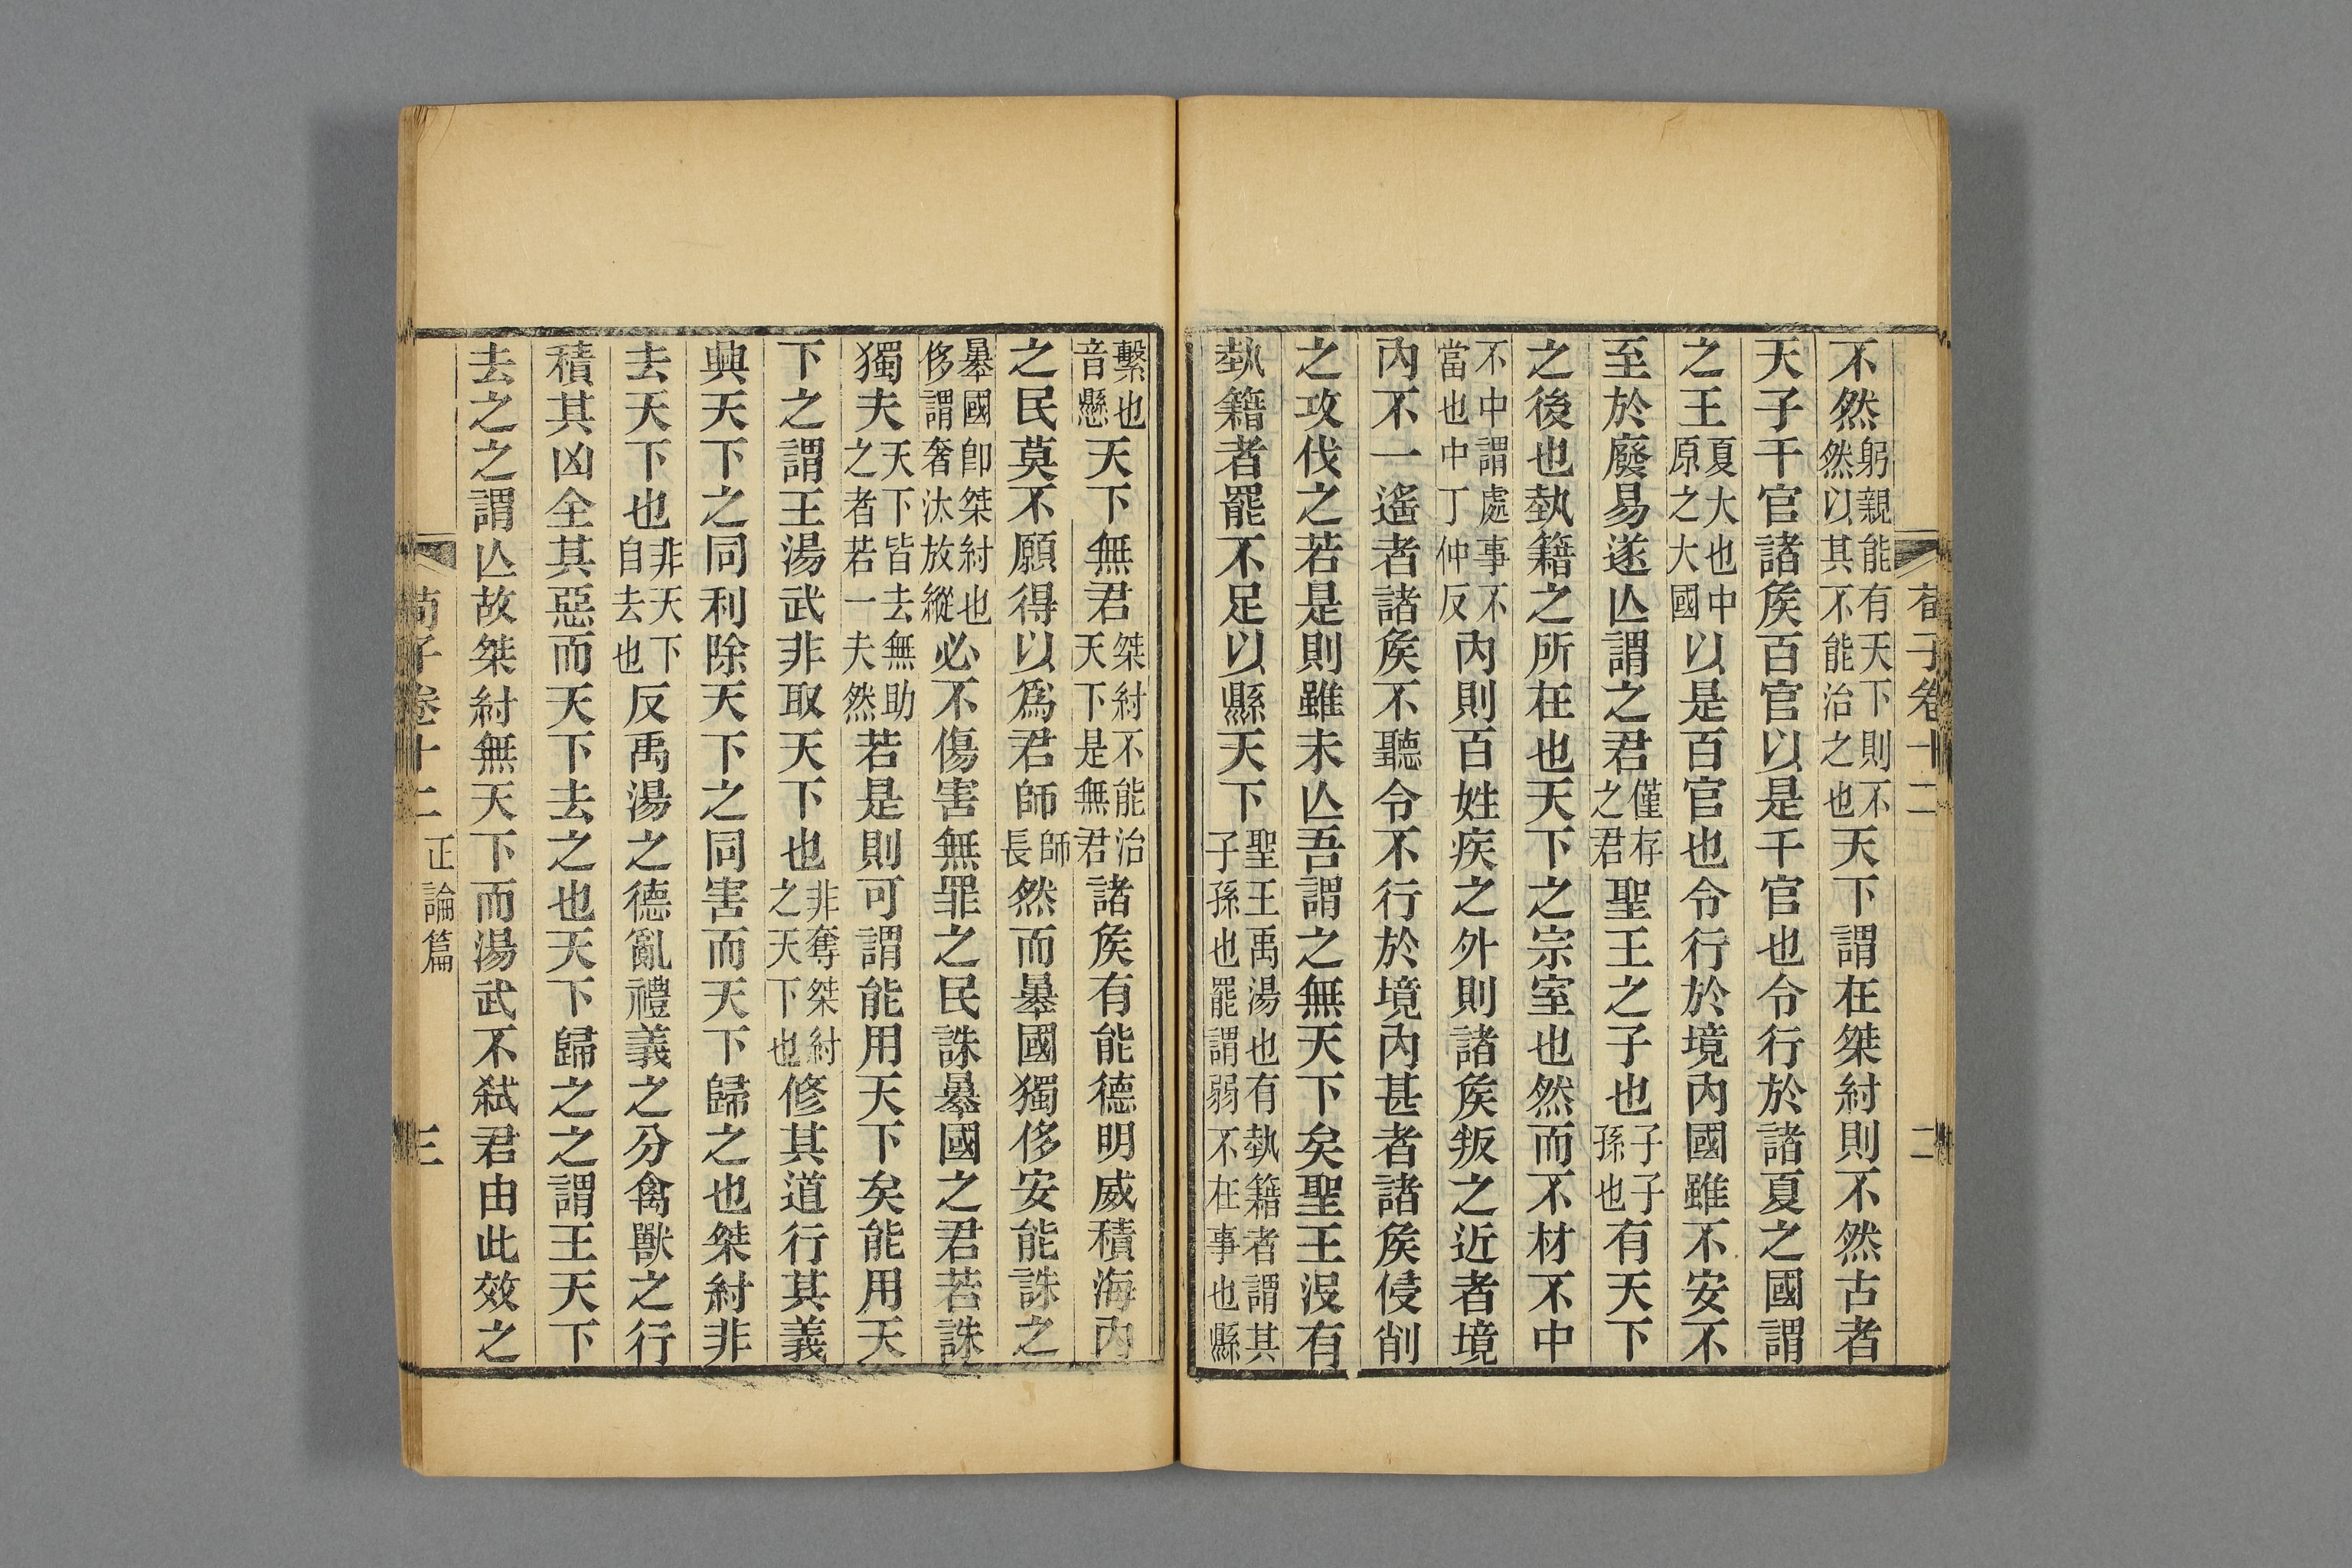 荀子卷十二
二
不然躬親能有天下則不然以其不能治之也天下謂在桀紂則不然古者
天子千官諸矦百官以是千官也令行於諸夏之國謂
之王夏大也中原之大國以是百官也令行於境內國雖不安不
至於廢易遂亾謂之君僅存之君聖王之子也子子孫也有天下
之後也埶籍之所在也天下之宗室也然而不材不中
不中謂處事不當也中丁仲反內則百姓疾之外則諸矦叛之近者境
內不一遙者諸矦不聽令不行於境內甚者諸矦侵削
之攻伐之若是則雖未亾吾謂之無天下矣聖王沒有
埶籍者罷不足以縣天下聖王禹湯也有埶籍者謂其子孫也罷謂弱不在事也縣
繫也音懸天下無君桀紂不能治天下是無君諸矦有能德明威積海內
之民莫不願得以爲君師師長然而暴國獨侈安能誅之
暴國卽桀紂也侈謂奢汰放縱必不傷害無罪之民誅暴國之君若誅
獨夫天下皆去無助之者若一夫然若是則可謂能用天下矣能用天
下之謂王湯武非取天下也非奪桀紂之天下也修其道行其義
興天下之同利除天下之同害而天下歸之也桀紂非
去天下也非天下自去也反禹湯之德亂禮義之分禽獸之行
積其凶全其惡而天下去之也天下歸之之謂王天下
去之之謂亾故桀紂無天下而湯武不弒君由此效之
荀子卷十二
正論篇
三